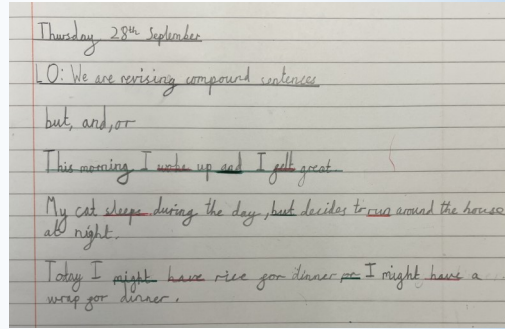 Thursday 28th September
LO: We are revising compound sentences
but, and, or
This morning I woke up and I felt great.
My cat sleeps during the day, but decides to run around the house
at night.
Today I might have rice for dinner or I might have a
wrap for dinner.